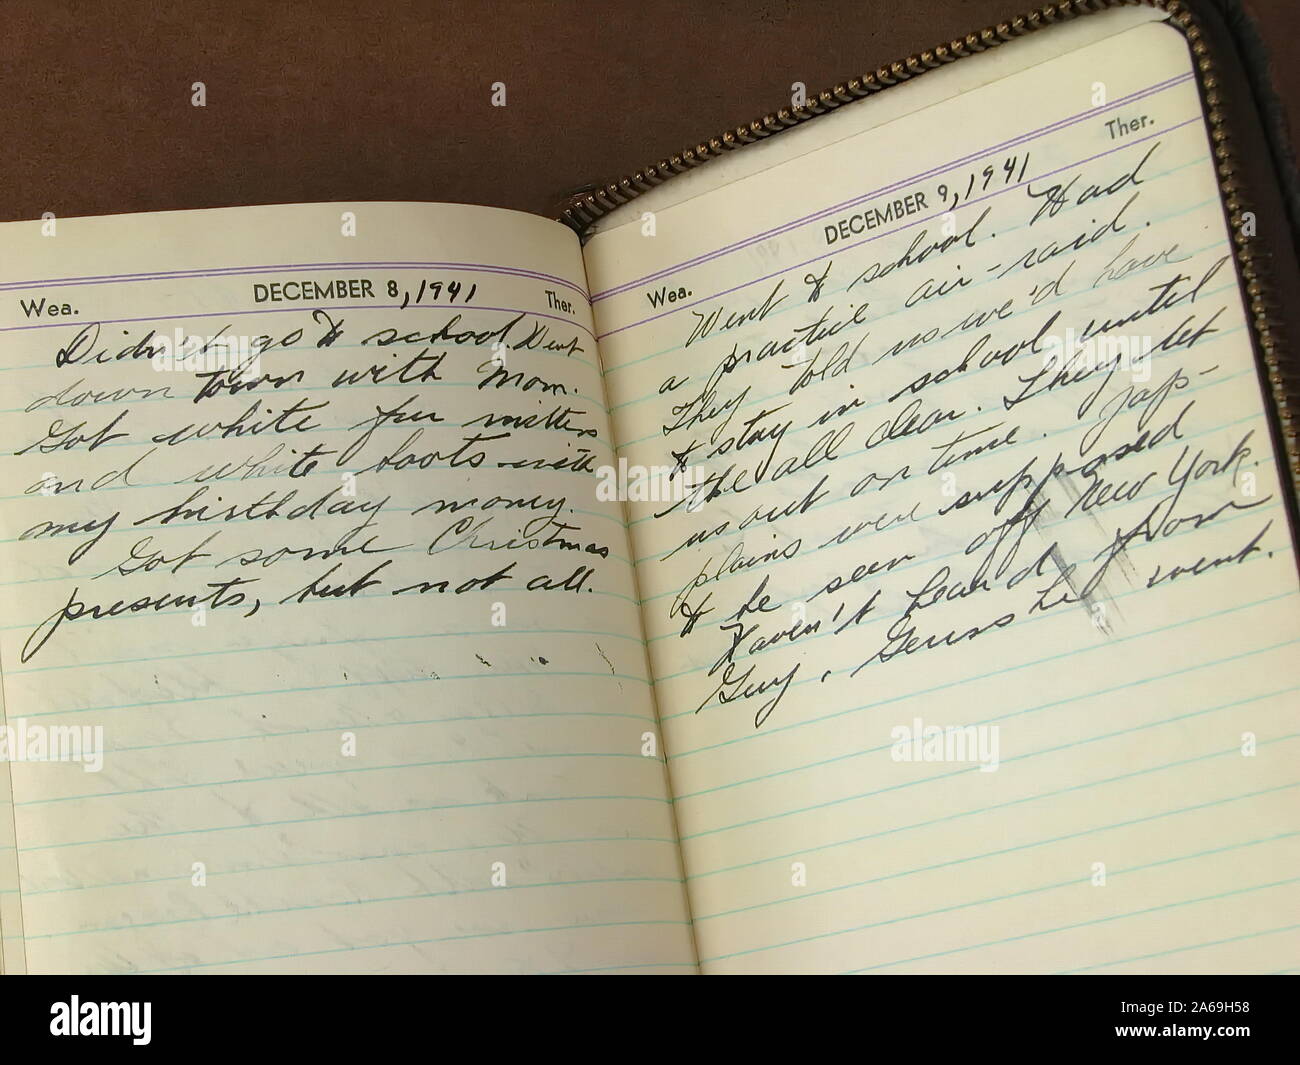 Wea. DECEMBER 8, 1941 Ther.
Didn't go to school. Went
down town with Mom.
Got white fur mittens
and white boots with
my birthday money.
Got some Christmas
presents, but not all.
Wea. DECEMBER 9, 1941 Ther.
Went to school. Had
a practice air-raid.
They told us we'd have
to stay in school until
the all clear. They let
us out on time. Jap-
plains were supposed
to be seen off New York.
Haven't heard from
Guy. Guess he went.
alamy
alamy
Image ID: 2A69H58
www.alamy.com